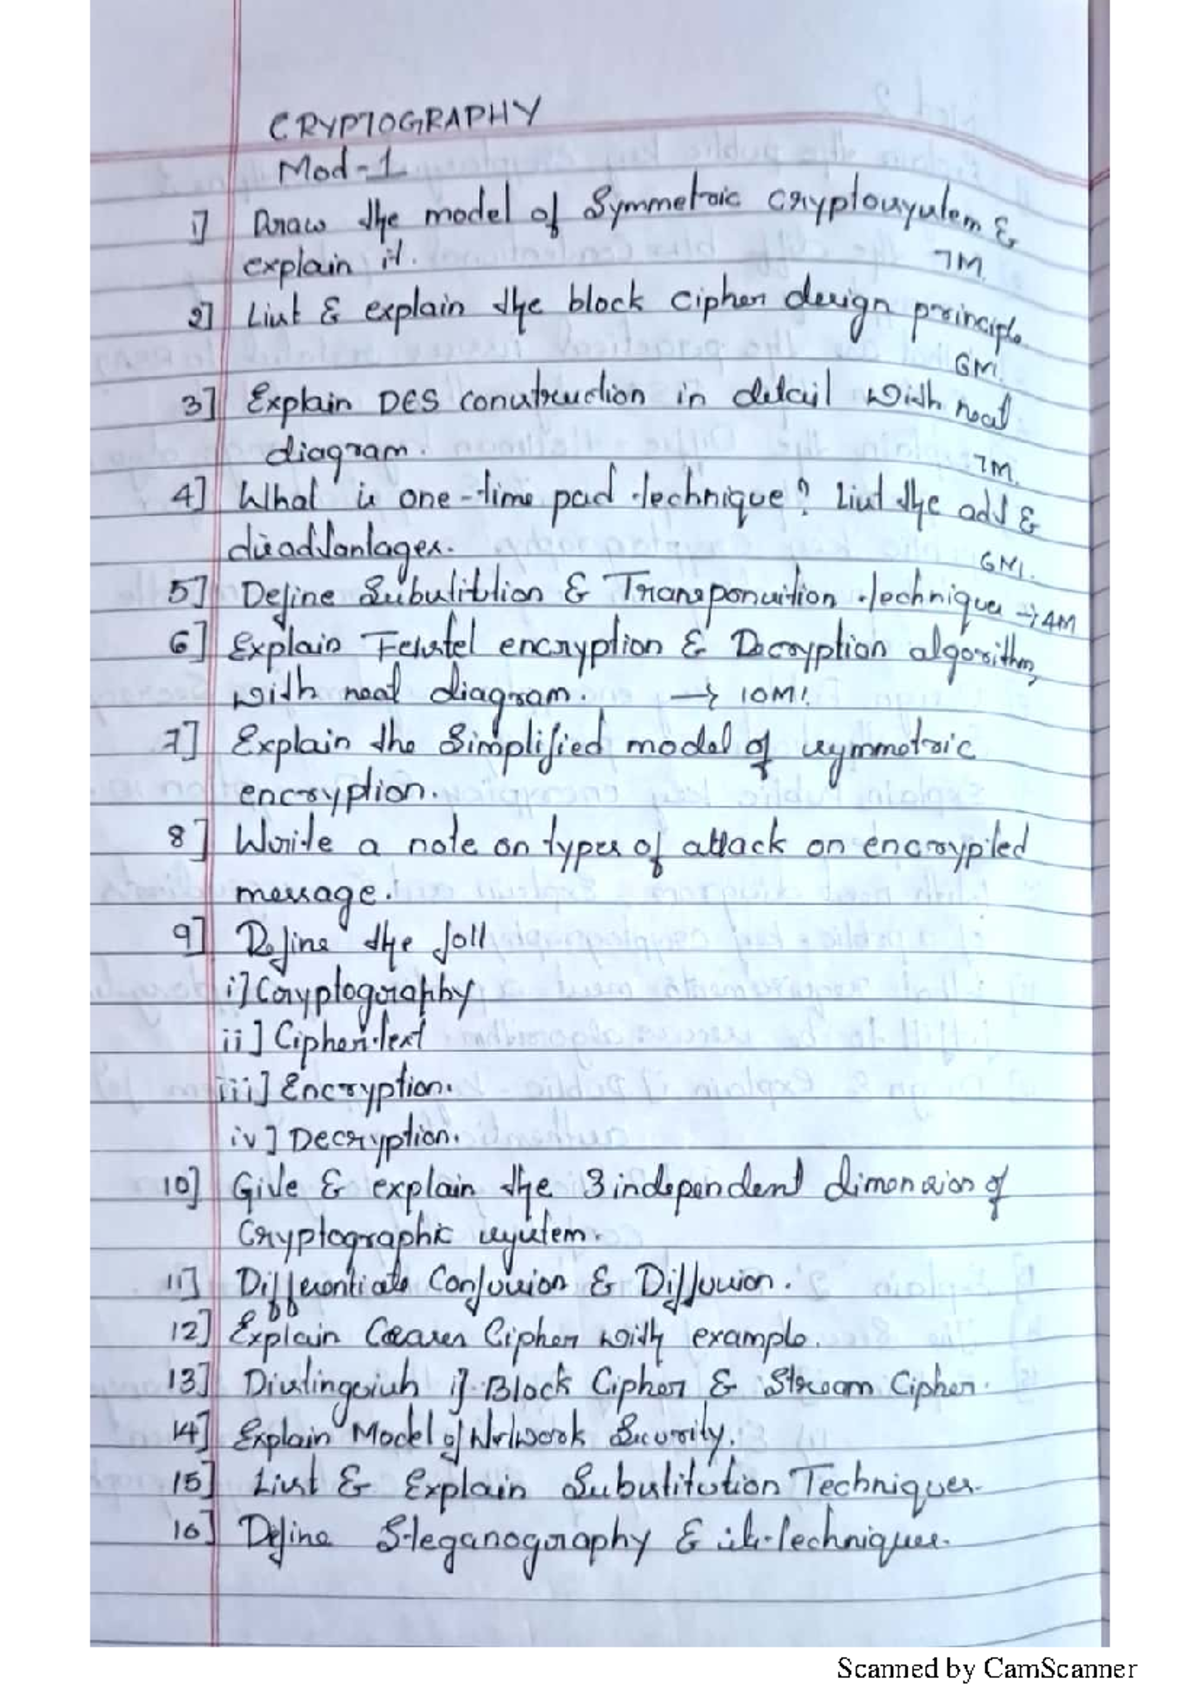 CRYPTOGRAPHY
Mod-1
1] Draw the model of Symmetric cryptosystem &
explain it. 7M.
2] List & explain the block cipher design principle.
6M.
3] Explain DES construction in detail with neat
diagram. 7M.
4] What is one-time pad technique? List the adv &
disadvantages. 6M.
5] Define Substitution & Transposition technique → 4M
6] Explain Feistel encryption & Decryption algorithm,
with neat diagram. → 10M.
7] Explain the Simplified model of symmetric
encryption.
8] Write a note on types of attack on encrypted
message.
9] Define the foll
i] Cryptography
ii] Cipher text
iii] Encryption.
iv] Decryption.
10] Give & explain the 3 independent dimension of
Cryptographic system.
11] Differentiate Confusion & Diffusion.
12] Explain Ceaser Cipher with example.
13] Distinguish i] Block Cipher & Stream Cipher.
14] Explain Model of Network Security.
15] List & Explain Substitution Techniques.
16] Define Steganography & its techniques.
Scanned by CamScanner